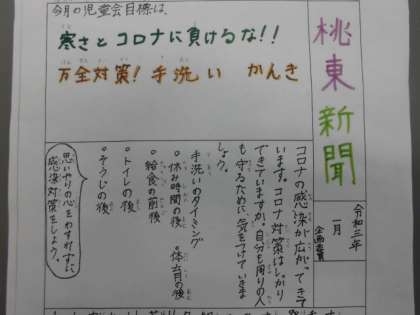 桃東新聞
令和三年
一月
企画委員
今月の児童会目標は、
寒さとコロナに負けるな!!
万全対策!手洗い かんき
コロナの感染が広がってきて
います。コロナ対策はしっかり
できていますか。自分も周りの人
も守るために、気をつけていきま
しょう。
手洗いのタイミング
・休み時間の後 ・体育の後
・給食の前後
・トイレの後
・そうじの後
思いやりの心をわすれずに、
感染対策をしよう。